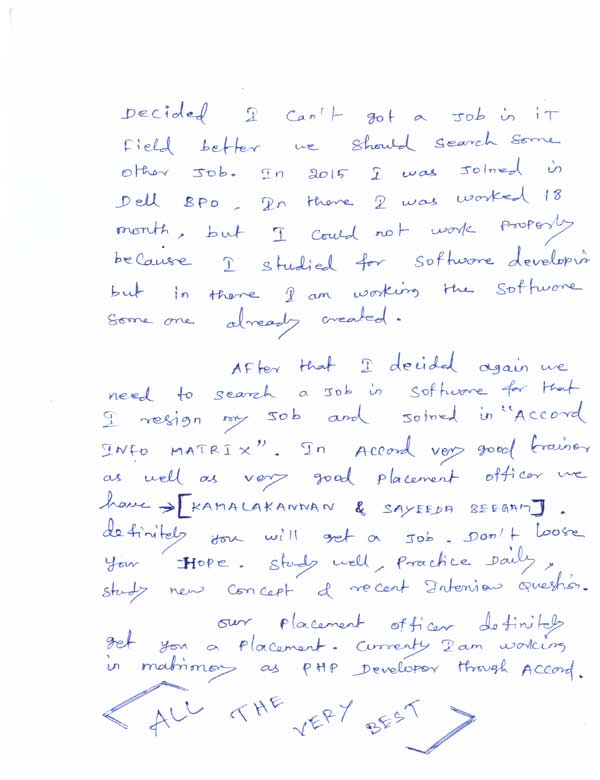 Decided I can't got a Job in iT
Field better we should search some
other Job. In 2015 I was Joined in
Dell BPO. In there I was worked 18
month, but I could not work properly
because I studied for software developin
but in there I am working the software
Some one already created.
After that I decided again we
need to search a Job in software for that
I resign my Job and Joined in "ACCORD
INFO MATRIX". In Accord very good trainer
as well as very good placement officer we
have → [KAMALAKANNAN & SAYEEDA BEEGAM].
definitely you will get a Job. Don't loose
your HOPE. Study well, Practice Daily,
study new concept & recent Interview question.
our placement officer definitely
get you a placement. Currently I am working
in matrimony as PHP Developer through Accord.
<ALL THE VERY BEST>